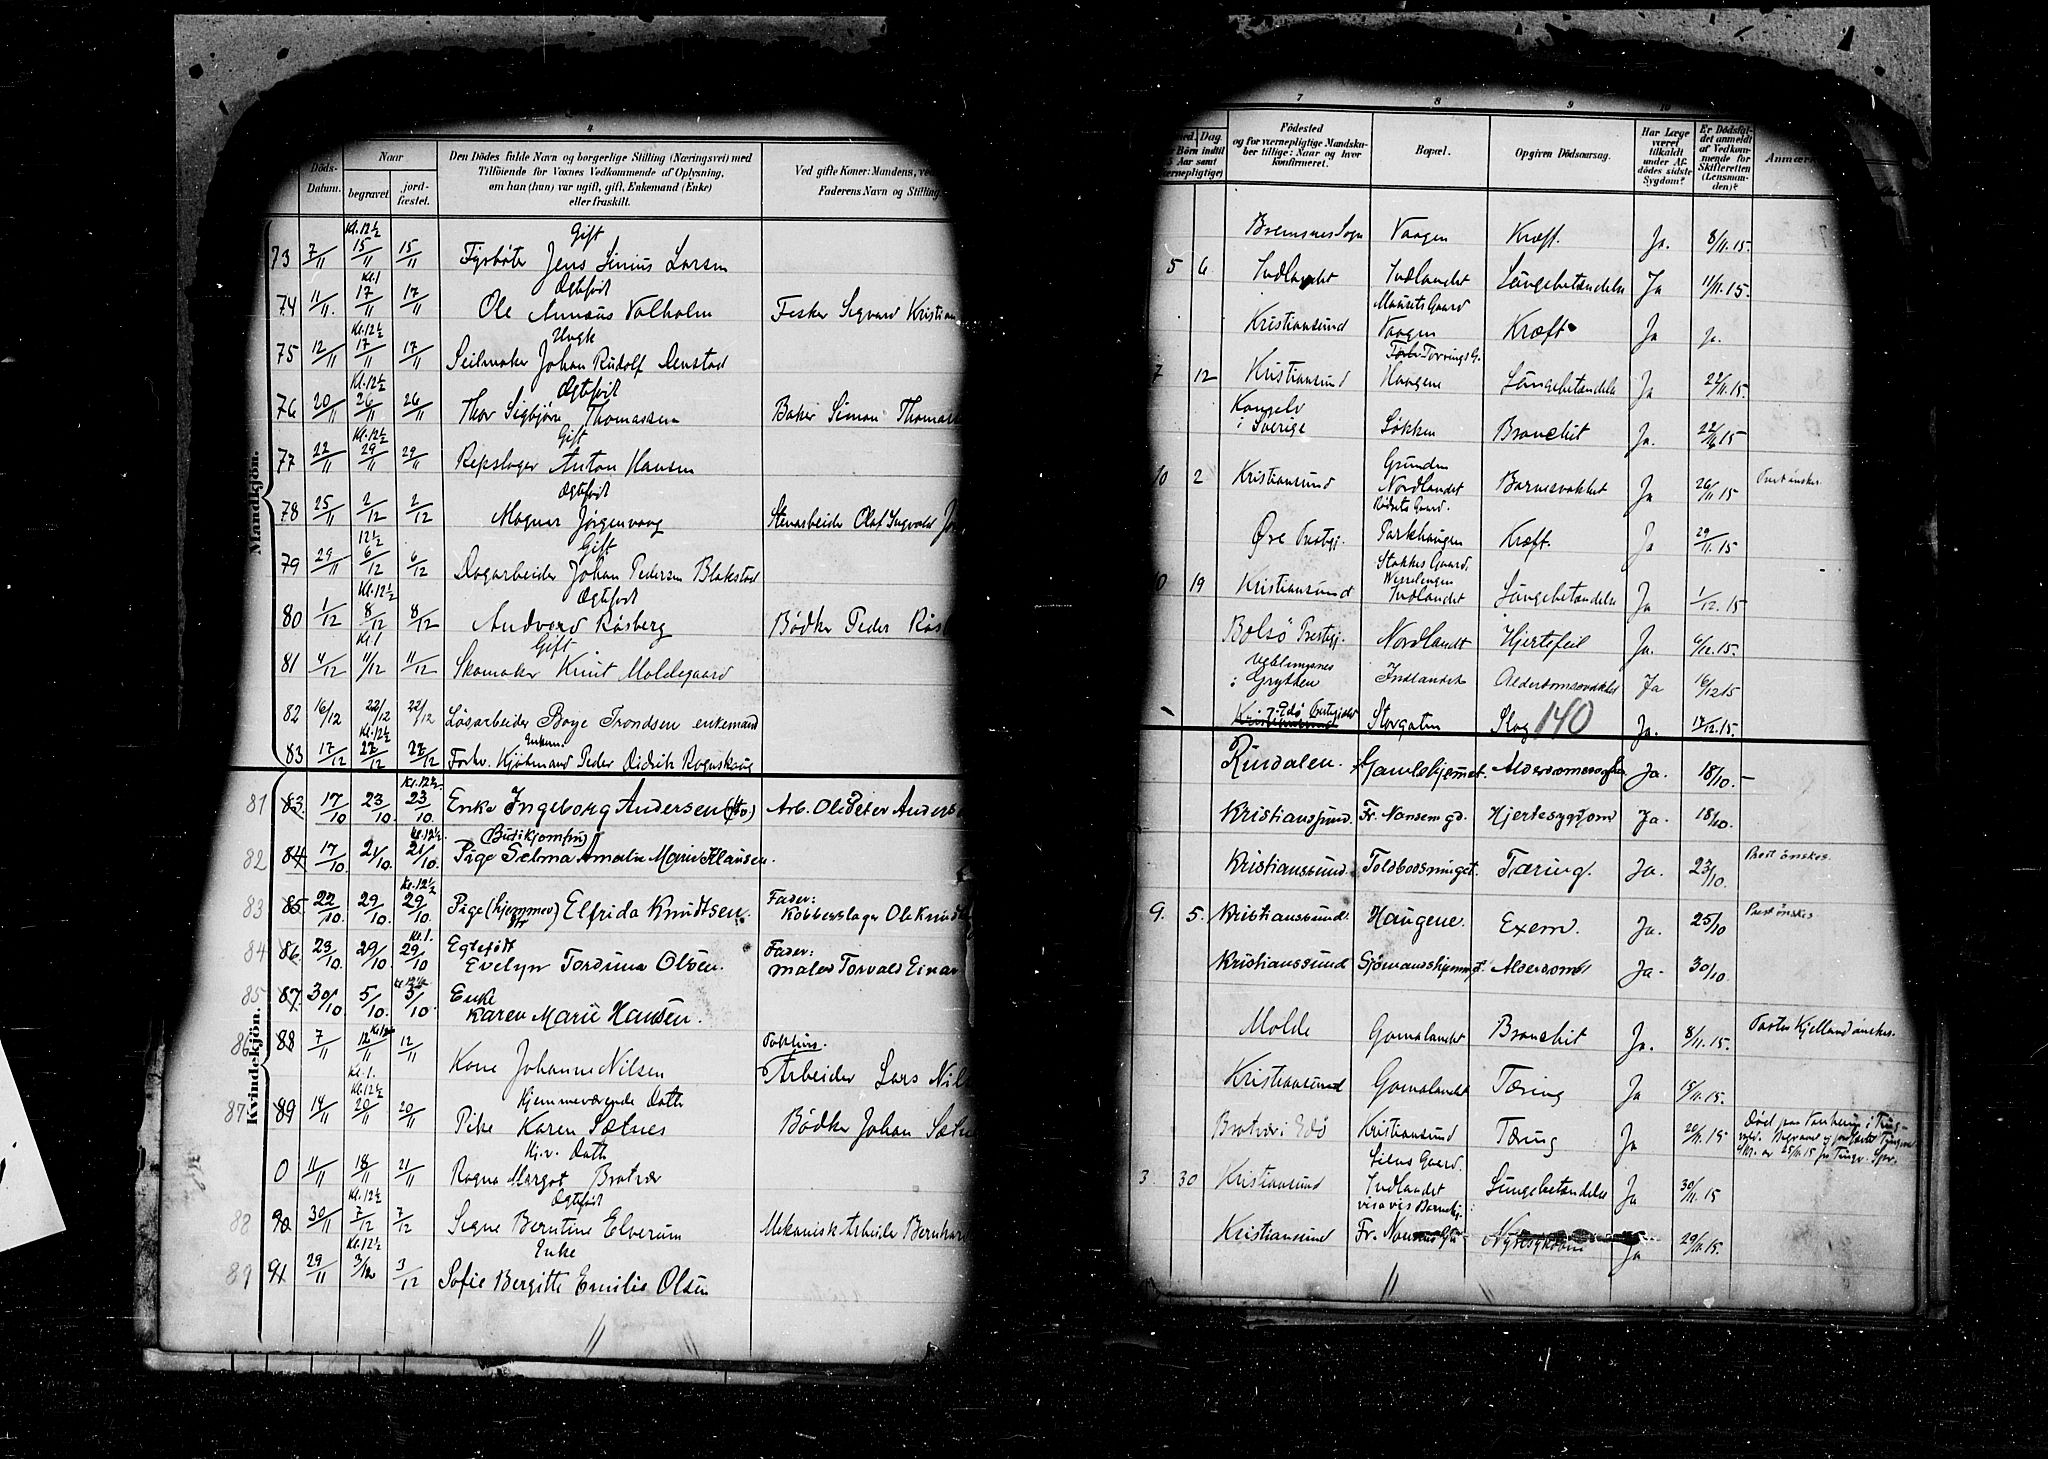 4
Döds-
Datum.
Naar
begravet.
jord-
fæstet.
Den Dödes fulde Navn og borgerlige Stilling (Næringsvei) med
Tilföiende for Voxnes Vedkommende af Oplysning,
om han (hun) var ugift, gift, Enkemand (Enke)
eller fraskilt.
Ved gifte Koner: Mandens, ved
Faderens Navn og Stilling
Mandkjön.
Kl. 12½ Gift
73 7/11 15/11 15/11 Fyrböter Jens Sinius Larsen
Kl. 1 Ægtefödt
74 11/11. 17/11 17/11 Ole Annæus Valholm Fisker Sigvard Kristian
Kl. 12½ Ungk
75 12/11 17/11 17/11 Seilmaker Johan Rudolf Denstad
Kl. 12½ Ægtefödt
76 20/11 26/11 26/11 Thor Sigbjörn Thomassen Baker Simon Thomass
Kl. 12½ Gift
77 22/11 29/11 29/11 Repslager Anton Hansen
Ægtefödt
78 25/11 2/12 2/12 Magnar Jörgenvaag Stenarbeider Olaf Ingvald Jör
12½ Gift
79 29/11 6/12 6/12 Dagarbeider Johan Pedersen Blakstad
Kl. 12½ Ægtefödt
80 1/12 8/12 8/12 Andvord Råsberg Bödker Peder Rås
Kl. 1 Gift
81 4/12 11/12 11/12 Skomaker Knut Moldegaard
82 16/12 22/12 22/12 Lösarbeider Boye Trondsen enkemand
Kl. 12½ Enkem.
83 17/12 27/12 27/12 Forhv. Kjöbmand Peder Didrik Rognskaug
Kvindekjön.
Kl. 12½
81 83. 17/10 23/10 23/10. Enke Ingeborg Andersen Arb. Ole Peter Anders
Kl. 12½. (Butikjomfru)
82 84 17/10 21/10. 21/10. Pige Selma Amalie Marie Klausen.
Kl. 12½ Fader:
83 85. 22/10. 29/10. 29/10. Pige (hjemmev) Elfrida Knudtsen. Kobberslager Ole Knudt
Kl. 1. Egtefödt Fader:
84 86. 23/10. 29/10. 29/10 Evelyn Tordune Olsen. maler Torvald Einar
Kl. 12½ Enke
85 87. 30/10 5/10. 5/10. Karen Marie Hansen.
86 88 7/11 12/11 12/11 Kone Johanne Nilsen Arbeider Lars Nils
Kl. 1.
Kl. 12½ Hjemmeværende Dath
87 89 14/11 20/11 20/11 Pike Karen Sætnes Bödker Johan Sætn
Hj. v. Dath
0 11/11 18/11 21/11 Ragna Margot Bratvær
Kl. 12½ Ægtefödt
88 90 30/11 7/12 7/12 Signe Berntine Elverum Mekanisk Arbeider Bernhar
Kl. 12½ Enke
89 91 29/11 3/12 3/12 Sofie Bergitte Emilie Olsen
7 8 9 10
Dag
Börn indtil
Aar samt
værnepligtige)
Födested
og for værnepligtige Mandsku-
ber tillige: Naar og hvor
konfirmeret.
Bopæl.
Opgiven Dödsaarsag.
Har Læge
været
tilkaldt
under Af-
dödes sidste
Sygdom?
Er Dödsfal-
det anmeldt
af Vedkom-
mende for
Skifteretten
(Lensman-
den)?
Anmærk
Bremsnes Sogn Vaagen Kræft. Ja. 8/11. 15.
5 6 Indlandet Indlandet Lungebetændelse Ja 11/11. 15.
Maurits Gaard
Kristiansund Vaagen Kræft Ja ja.
7 12 Kristiansund Haugene Lungebetændelse Ja 22/11. 15.
i Sverige Løkken Bronchit Ja. 22/11 15
Grunden
10 2 Kristiansund Nordlandet Barnesvakhet Ja 26/11 15 Prest önskes
Øre Prestgj. Parkhaugen Kræft. Ja 29/11. 15
Stokkes Gaard.
10 19 Kristiansund Indlandet Lungebetændelse Ja 1/12. 15
Bolsö Prestgj. Nordlandt Hjertefeil Ja. 6/12. 15.
Veblungsnes
i Grytten Indlandet Alderdomssvakhet Ja 16/12 15
Kristiansund Edö Prestgjeld Storgaten Slag 140 Ja. 17/12. 15.
Rindalen. Gamlehjemmet. Ja. 18/10. —
Kristianssund. Fr. Nansens gd. Hjertesygdom Ja. 18/10.
Kristianssund. Tæring. Ja. 23/10. Prest önskes.
9. 5. Kristianssund. Haugene. Exem. Ja. 25/10 Prest önskes
Kristianssund Sjömandshjemmet. Alderdom Ja. 30/10.
Molde Gomalandet Bronchit Ja. 8/11. 15. Pastor Kjelland önskes.
Kristiansund Gomalandet Tæring Ja 15/11. 15.
Bratvær i Edö Kristiansund Tæring Ja 22/11. 15
3. 30 Kristiansund Indlandet Lungebetændelse Ja 30/11. 15
vis a vis Barnehj.
Kristiansund Fr. Nansens Gd Nyresygdom Ja 29/11. 15.